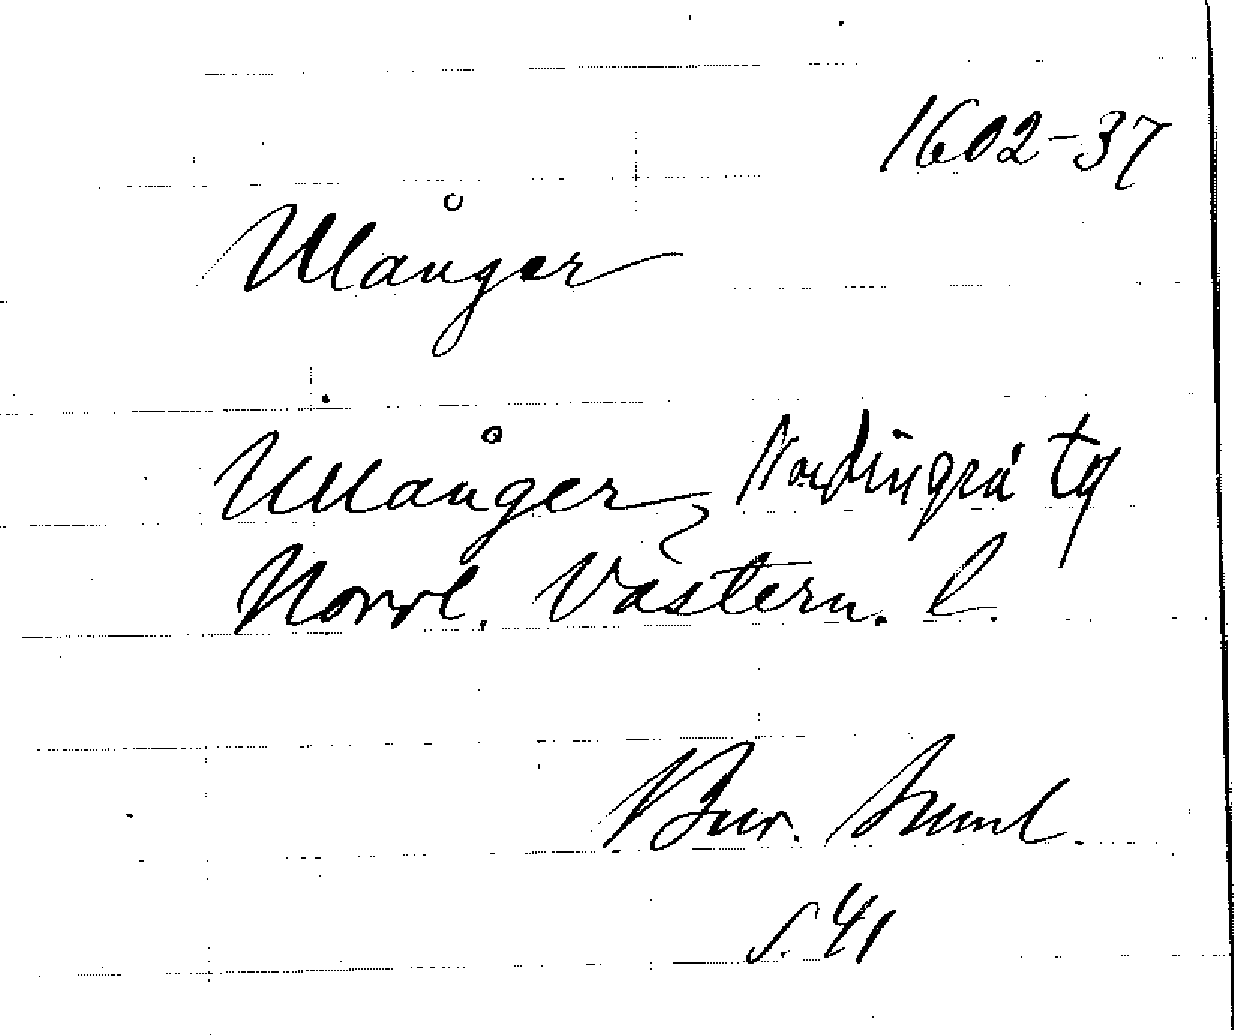 1602-37
Ulånger
Ullånger, Nordingrå tg
Norrl. Västern. l.
Bur. Suml.
s. 41